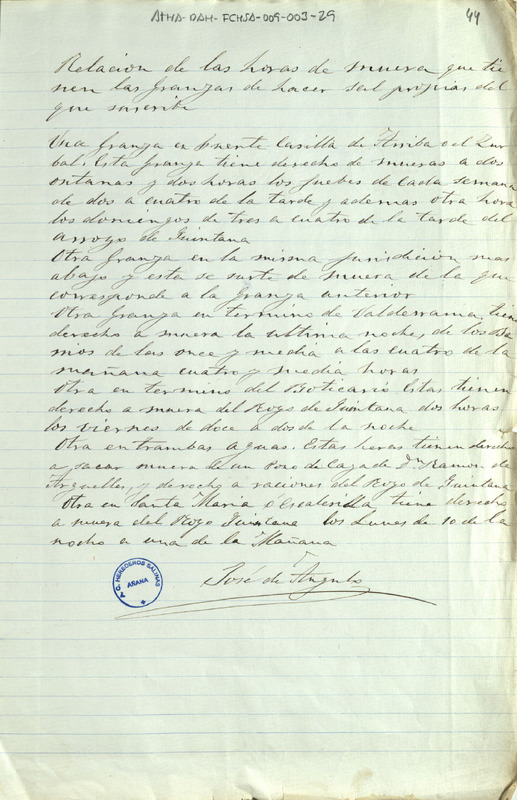 ATHA-DAH-FCHSA-009-003-29
44
Relacion de las horas de muera que tie
nen las granjas de hacer sal propias del
que suscribe
Una granja en fuente Casilla de Arriba o el Zur
bal. Esta granja tiene derecho de mueras a dos
ontanas y dos horas los juebes de cada semana
de dos a cuatro de la tarde y ademas otra hora
los domingos de tres a cuatro de la tarde del
arroyo de Quintana
Otra granja en la misma jurisdicion mas
abajo y esta se surte de muera de la que
corresponde a la granja anterior
Otra granja en termino de Valderrama, tiene
derecho a muera la ultima noche, de los Ba
rrios de las once y media a las cuatro de la
mañana cuatro y media horas
Otra en termino del Boticario Estas tienen
derecho a muera del Royo de Quintana dos horas
los viernes de doce a dos de la noche
Otra entrambas aguas. Estas heras tienen derecho
a sacar muera de un Pozo de Caza de Dn Ramon de
Arguelles, y derecho a raciones del Royo de Quintana
Otra en Santa Maria o Escalerilla tiene derecho
a muera del Royo Quintana los Lunes de 10 de la
noche a una de la Mañana
José de Angulo
HEREDEROS SALINAS
AÑANA